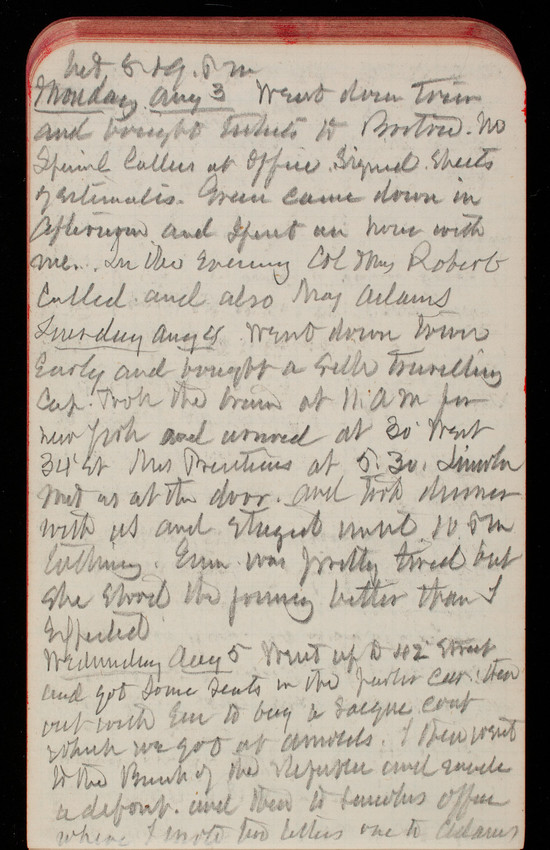 bed 8 to 9. P m
Monday Aug 3 Went down town
and bought tickets to Boston. No
Special Callers at Office. Signed Sheets
of estimates. Green came down in
afternoon and Spent an hour with
me. In the Evening Col Mrs Robert
Called and also Maj Adams
Tuesday Aug 4 Went down town
Early and bought a Silk travelling
Cap. Took the train at 11. A m for
new York and arrived at 30 West
34 St Mrs Prentices at 5.30. Lincoln
met us at the door. and took dinner
with us and stayed until 10 P m
talking. Em was pretty tired but
She Stood the journey better than I
Expected
Wednesday Aug 5 Went up to 42 Street
and got Some Seats in the parlor car. then
out with Em to buy a Sacque coat
which we got at Arnolds. I then went
to the Bank of the Republic and made
a deposit. and then to Lincolns office
where I wrote two letters one to Adams